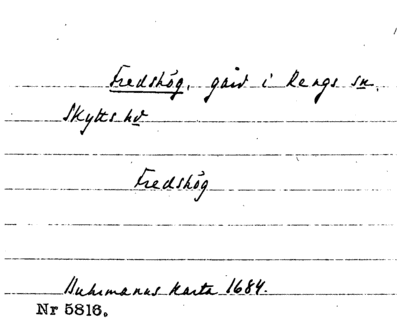 Fredshög, gård i Rengs sn.
Skytts hd
Fredshög
Buhrmanns karta 1684.
Nr 5816.